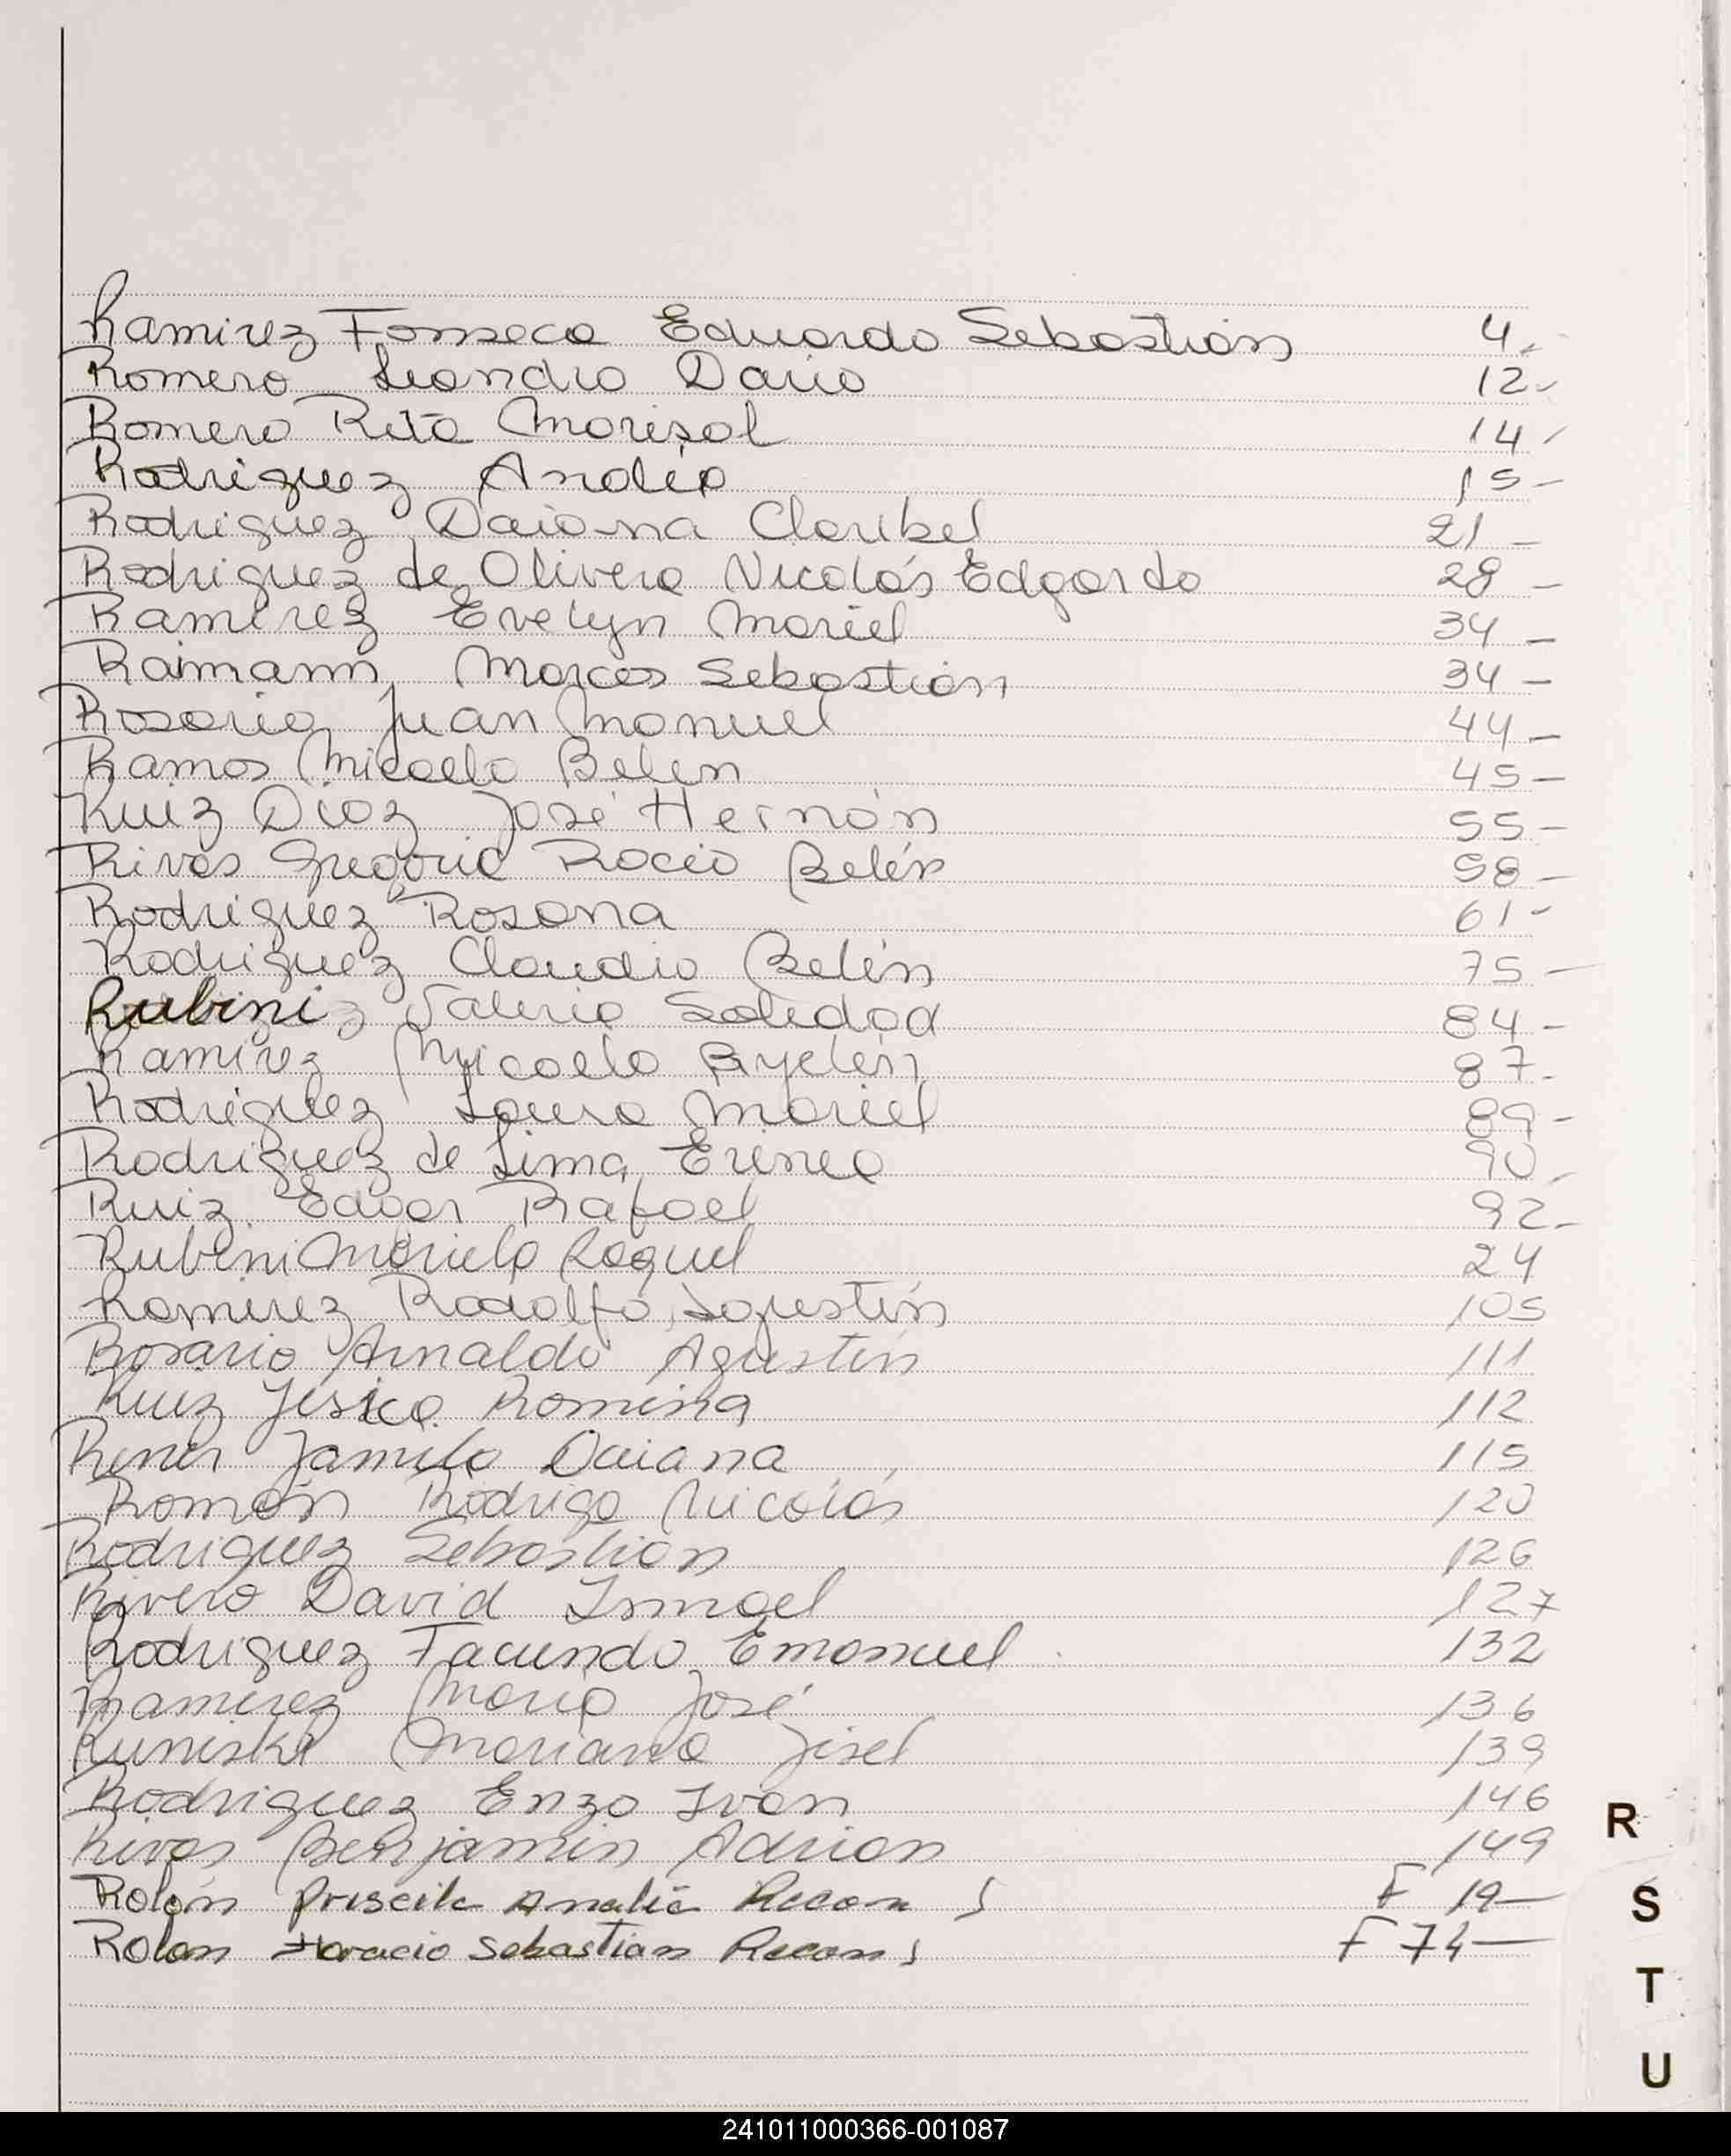 Ramirez Fonseca Eduardo Sebastián 4
Romero Leandro Dario 12-
Romero Rita Marisol 14
Rodriguez Analia 15-
Rodriguez Daiana Claribel 21-
Rodriguez de Olivera Nicolás Edgardo 28-
Ramirez Evelyn Mariel 34-
Raimann, Marcos Sebastián 34-
Rosario Juan Manuel 44-
Ramos Micaela Belen 45-
Ruiz Diaz José Hernán 55-
Rivas Gregorio Rocio Belén 58-
Rodriguez Rosana 61-
Rodriguez Claudia Belén 75-
Rubini Valeria Soledad 84-
Ramirez Micaela Ayelén 87-
Rodriguez Laura Mariel 89-
Rodriguez de Lima, Erineo 90
Ruiz Edgar Rafael 92-
Rubini Mariela Raquel 24
Ramirez Rodolfo Agustín 105
Rosario Arnaldo Agustín 111
Ruiz Jesica Romina 112
Rener Jamila Daiana 115
Román Rodrigo Nicolás 120
Rodriguez Sebastian 126
Rivero David Ismael 127
Rodriguez Facundo Emanuel 132
Ramirez Maria José 136
Runiski Mariana Jisel 139
Rodriguez Enzo Ivan 146
Rivas Benjamin Adrian 149
Rolón Priscila Analia Recon F 19-
Rolon Horacio Sebastian Recon F 74-
R
S
T
U
241011000366-001087